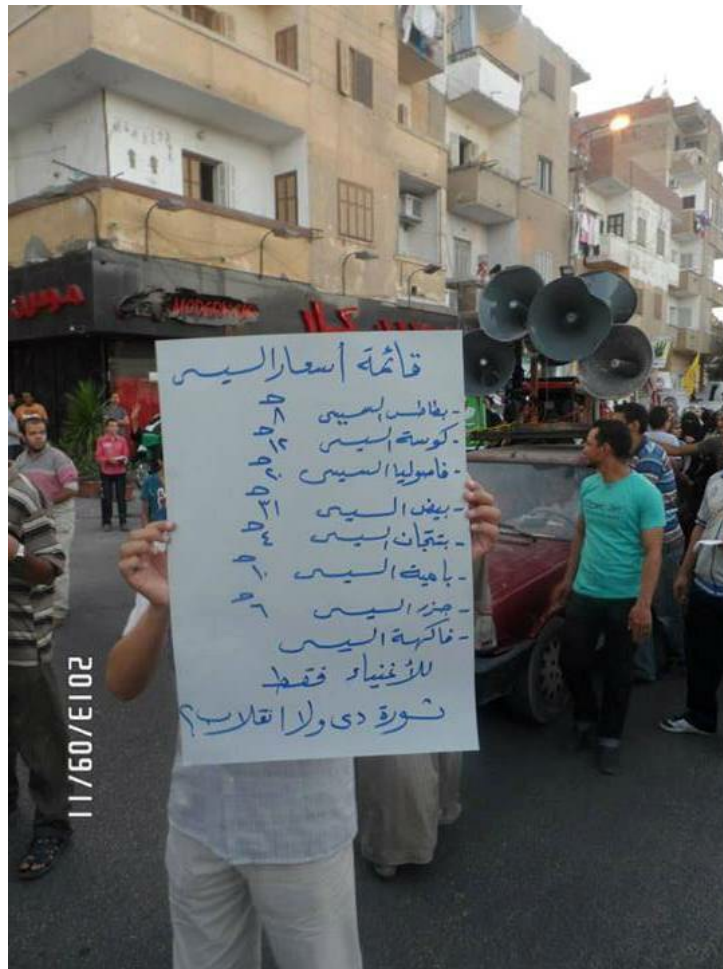 قائمة أسعار السيسى
- بطاطس السيسى ٨ج
- كوسة السيسى ١٢ج
- فاصوليا السيسى ٢٠ج
- بيض السيسى ٣١ج
- بتنجان السيسى ٤ج
- بامية السيسى ١٠ج
- جزر السيسى ٦ج
- فاكهة السيسى
للأغنياء فقط
ثورة دى ولا انقلاب؟
MODERN
2013/09/11